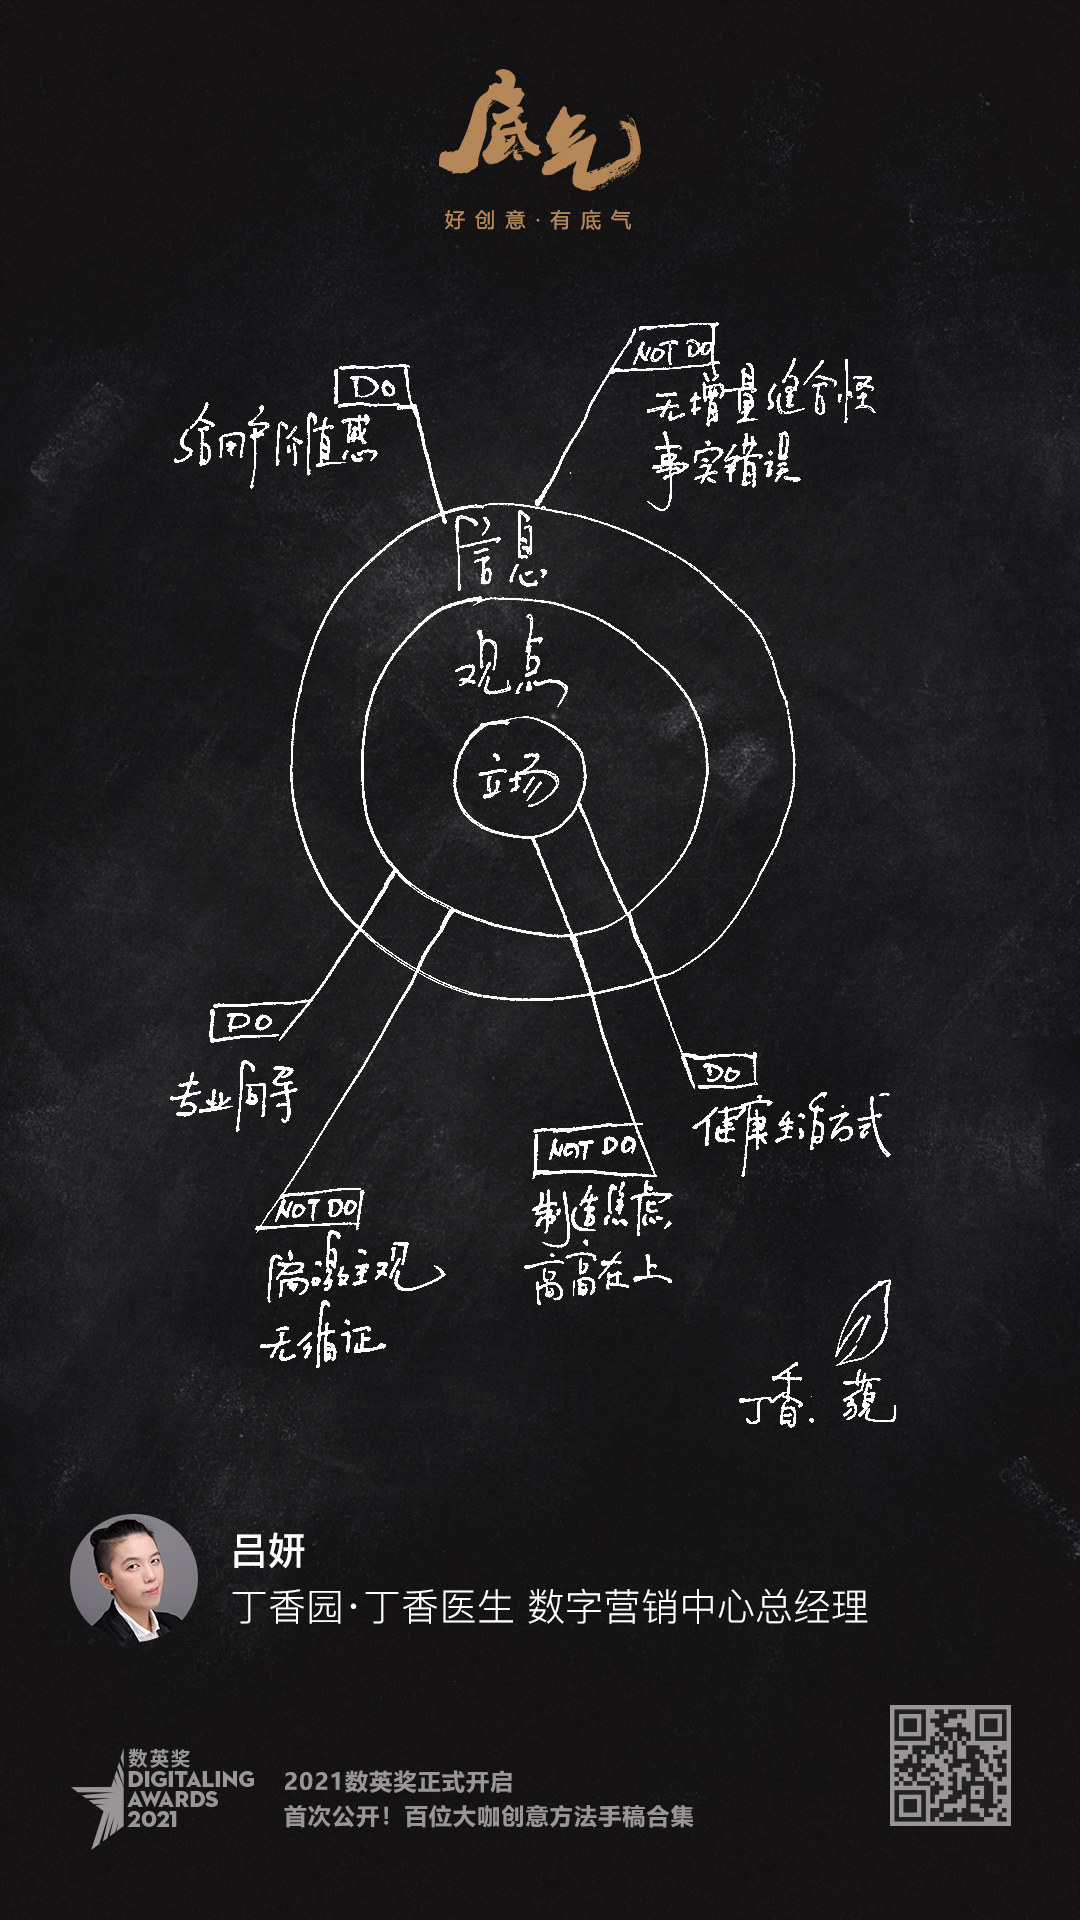 底气
好创意·有底气
DO
给用户价值感
NOT DO
无增量缝合怪
事实错误
信息
观点
立场
DO
专业向导
NOT DO
偏激主观
无循证
NOT DO
制造焦虑
高高在上
DO
健康生活方式
丁香.藐
吕妍
丁香园·丁香医生 数字营销中心总经理
数英奖
DIGITALING
AWARDS
2021
2021数英奖正式开启
首次公开！百位大咖创意方法手稿合集